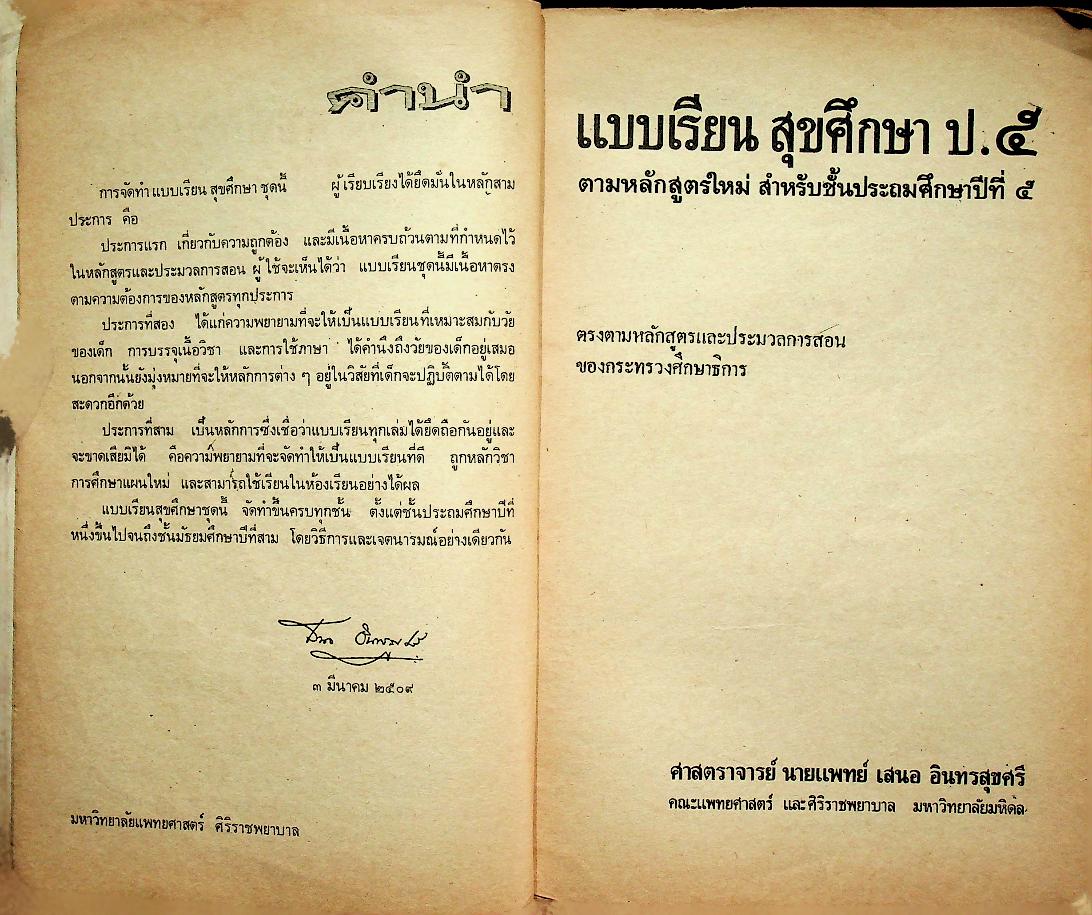 คำนำ
การจัดทำ แบบเรียน สุขศึกษา ชุดนี้ ผู้เรียบเรียงได้ยึดมั่นในหลักสาม
ประการ คือ
ประการแรก เกี่ยวกับความถูกต้อง และมีเนื้อหาครบถ้วนตามที่กำหนดไว้
ในหลักสูตรและประมวลการสอน ผู้ใช้จะเห็นได้ว่า แบบเรียนชุดนี้มีเนื้อหาตรง
ตามความต้องการของหลักสูตรทุกประการ
ประการที่สอง ได้แก่ความพยายามที่จะให้เป็นแบบเรียนที่เหมาะสมกับวัย
ของเด็ก การบรรจุเนื้อวิชา และการใช้ภาษา ได้คำนึงถึงวัยของเด็กอยู่เสมอ
นอกจากนั้นยังมุ่งหมายที่จะให้หลักการต่าง ๆ อยู่ในวิสัยที่เด็กจะปฏิบัติตามได้โดย
สะดวกอีกด้วย
ประการที่สาม เป็นหลักการซึ่งเชื่อว่าแบบเรียนทุกเล่มได้ยึดถือกันอยู่และ
จะขาดเสียมิได้ คือความพยายามที่จะจัดทำให้เป็นแบบเรียนที่ดี ถูกหลักวิชา
การศึกษาแผนใหม่ และสามารถใช้เรียนในห้องเรียนอย่างได้ผล
แบบเรียนสุขศึกษาชุดนี้ จัดทำขึ้นครบทุกชั้น ตั้งแต่ชั้นประถมศึกษาปีที่
หนึ่งขึ้นไปจนถึงชั้นมัธยมศึกษาปีที่สาม โดยวิธีการและเจตนารมณ์อย่างเดียวกัน
๓ มีนาคม ๒๕๐๙
มหาวิทยาลัยแพทยศาสตร์ ศิริราชพยาบาล
แบบเรียน สุขศึกษา ป.๕
ตามหลักสูตรใหม่ สำหรับชั้นประถมศึกษาปีที่ ๕
ตรงตามหลักสูตรและประมวลการสอน
ของกระทรวงศึกษาธิการ
ศาสตราจารย์ นายแพทย์ เสนอ อินทรสุขศรี
คณะแพทยศาสตร์ และศิริราชพยาบาล มหาวิทยาลัยมหิดล